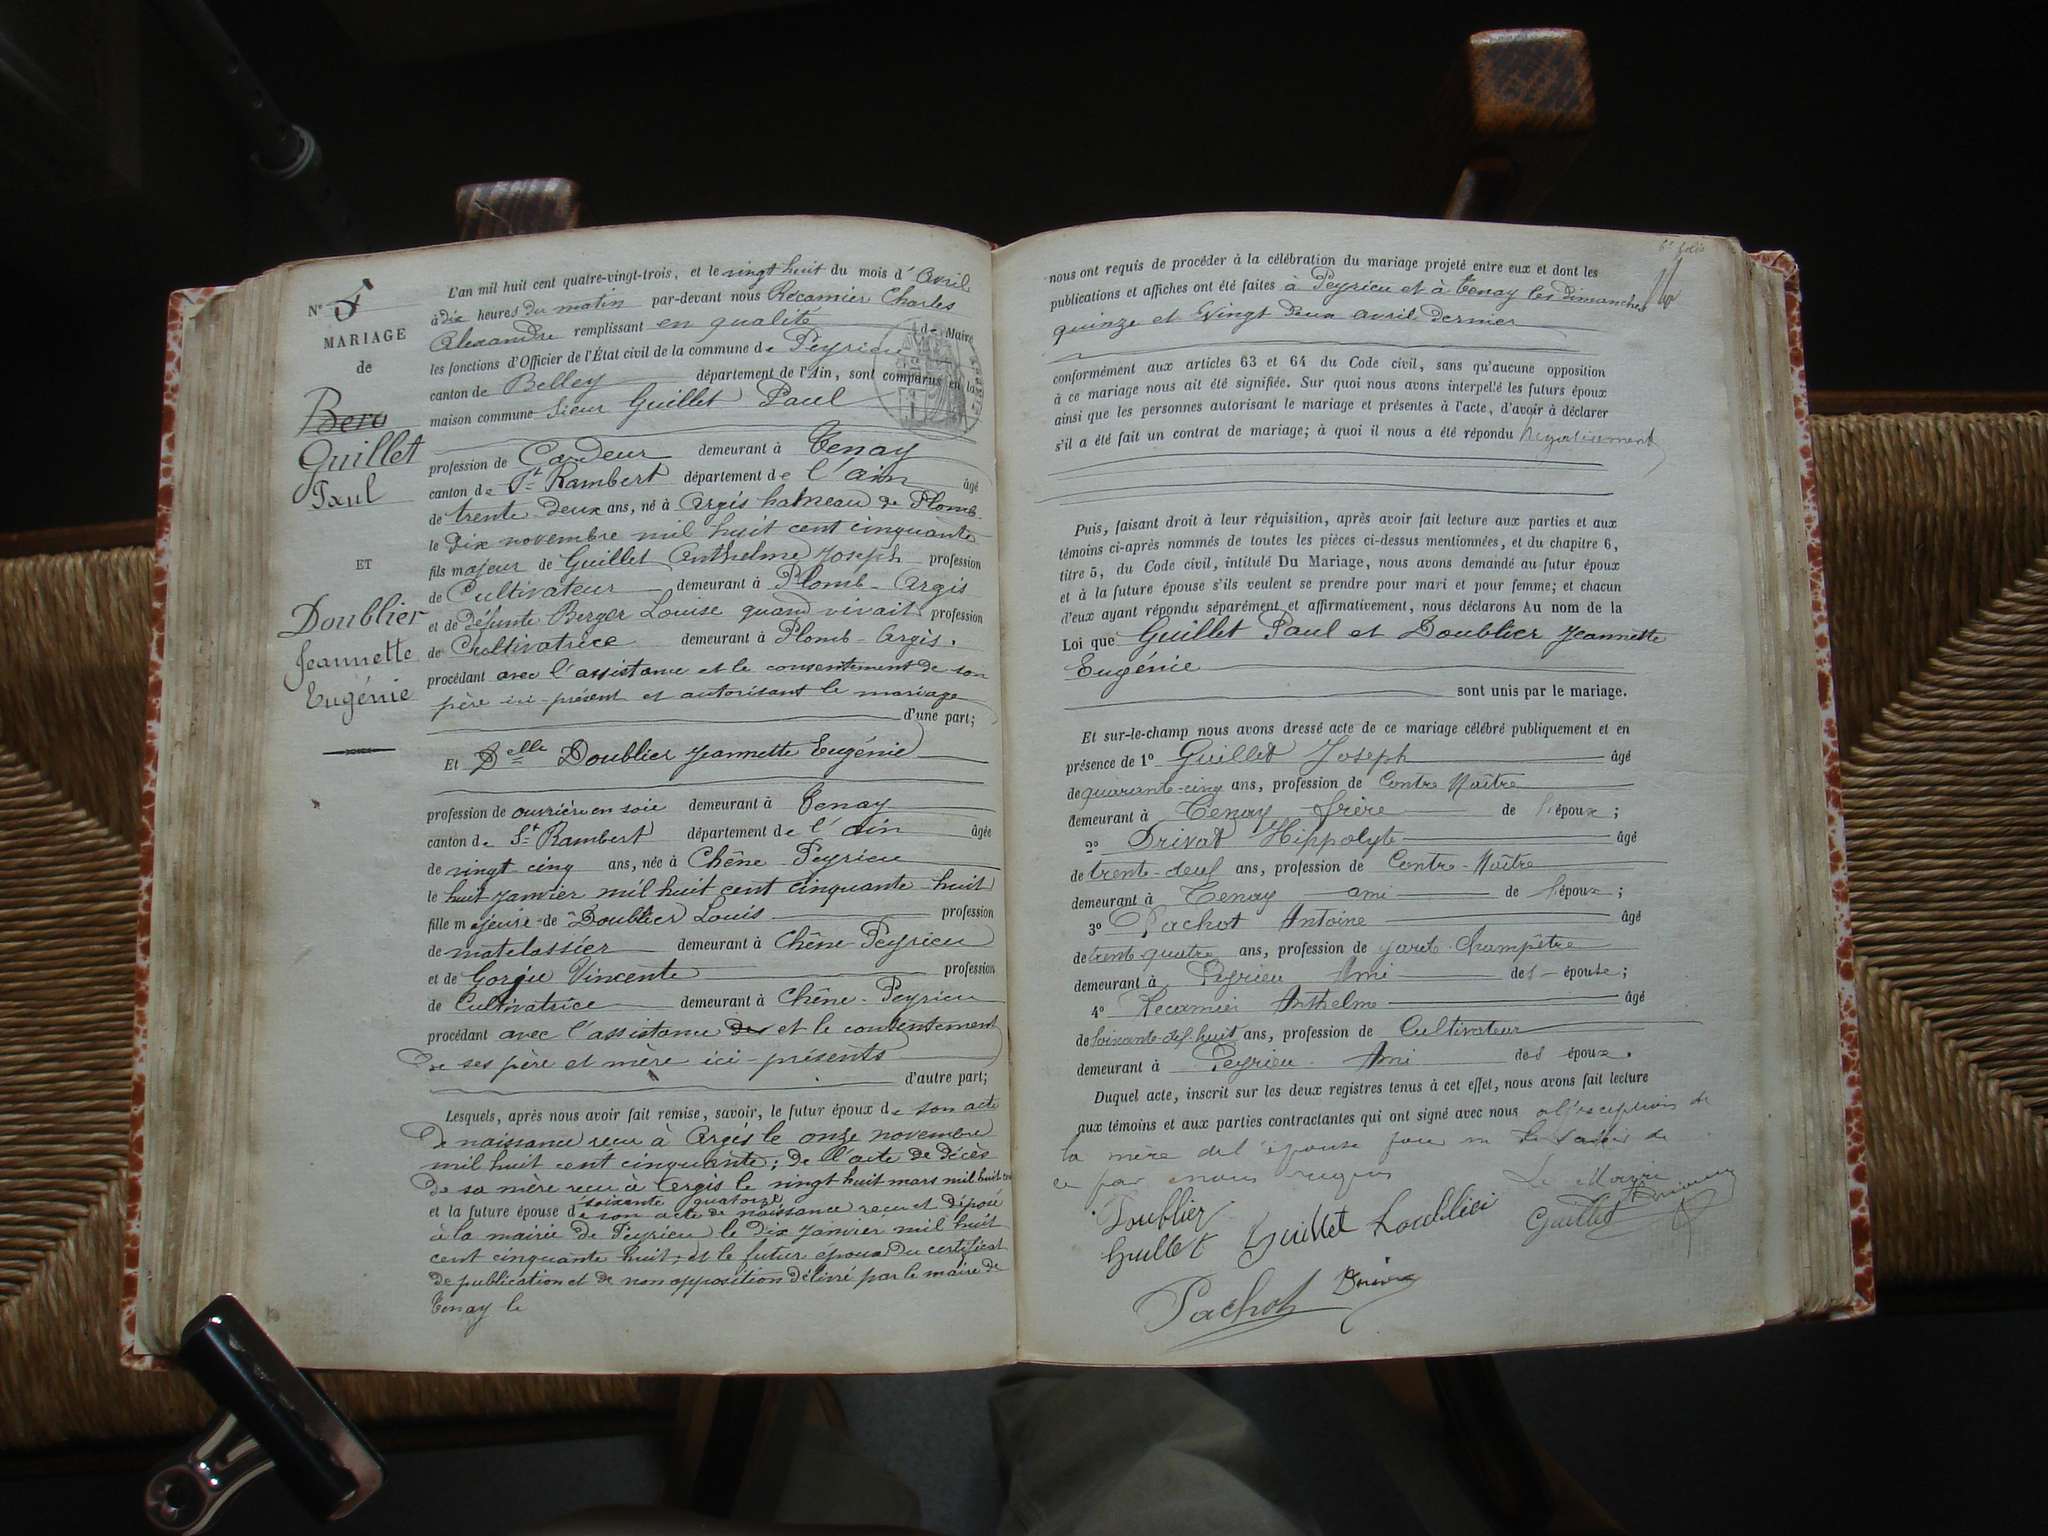 N° 5
MARIAGE
de
Guillet
Paul
ET
Doublier
Jeannette
Eugénie
L'an mil huit cent quatre-vingt-trois, et le vingt huit du mois d'Avril
à dix heures du matin par-devant nous Récamier Charles
Alexandre remplissant en qualité de Maire
les fonctions d'Officier de l'État civil de la commune de Peyrieu
canton de Belley département de l'Ain, sont comparus en la
maison commune Sieur Guillet Paul
profession de Cardeur demeurant à Tenay
canton de St Rambert département de l'ain âgé
de trente-deux ans, né à Argis hameau de Plomb
le dix novembre mil huit cent cinquante
fils majeur de Guillet Anthelme Joseph profession
de Cultivateur demeurant à Plomb-Argis
et de défunte Berger Louise quand vivait profession
de Cultivatrice demeurant à Plomb-Argis.
procédant avec l'assistance et le consentement de son
père ici-présent et autorisant le mariage
d'une part;
Et Delle Doublier Jeannette Eugénie
profession de ouvrière en soie demeurant à Tenay
canton de St Rambert département de l'ain âgée
de vingt cinq ans, née à Chêne-Peyrieu
le huit janvier mil huit cent cinquante-huit
fille majeure de Doublier Louis profession
de matelassier demeurant à Chêne-Peyrieu
et de Gorjie Vincente profession
de Cultivatrice demeurant à Chêne-Peyrieu
procédant avec l'assistance des et le consentement
de ses père et mère ici-présents
d'autre part;
Lesquels, après nous avoir fait remise, savoir, le futur époux de son acte
de naissance reçu à Argis le onze novembre
mil huit cent cinquante; de l'acte de décès
de sa mère reçu à Argis le vingt huit mars mil huit cent
soixante quatorze
et la future épouse de son acte de naissance reçu et déposé
à la mairie de Peyrieu le dix janvier mil huit
cent cinquante huit; et le futur époux du certificat
de publication et de non opposition délivré par le maire de
Tenay le
6e folio
nous ont requis de procéder à la célébration du mariage projeté entre eux et dont les
publications et affiches ont été faites à Peyrieu et à Tenay les dimanches
quinze et vingt deux avril dernier
conformément aux articles 63 et 64 du Code civil, sans qu'aucune opposition
à ce mariage nous ait été signifiée. Sur quoi nous avons interpellé les futurs époux
ainsi que les personnes autorisant le mariage et présentes à l'acte, d'avoir à déclarer
s'il a été fait un contrat de mariage; à quoi il nous a été répondu négativement
Puis, faisant droit à leur réquisition, après avoir fait lecture aux parties et aux
témoins ci-après nommés de toutes les pièces ci-dessus mentionnées, et du chapitre 6,
titre 5, du Code civil, intitulé Du Mariage, nous avons demandé au futur époux
et à la future épouse s'ils veulent se prendre pour mari et pour femme; et chacun
d'eux ayant répondu séparément et affirmativement, nous déclarons Au nom de la
Loi que Guillet Paul et Doublier Jeannette
Eugénie
sont unis par le mariage.
Et sur-le-champ nous avons dressé acte de ce mariage célébré publiquement et en
présence de 1° Guillet Joseph âgé
de quarante-cinq ans, profession de Contre Maître
demeurant à Tenay frère de l'époux;
2° Privat Hippolyte âgé
de trente-deux ans, profession de Contre-Maître
demeurant à Tenay ami de l'époux;
3° Pachot Antoine âgé
de trente quatre ans, profession de garde-Champêtre
demeurant à Peyrieu Ami de l'épouse;
4° Récamier Anthelme âgé
de soixante-dix-huit ans, profession de Cultivateur
demeurant à Peyrieu Ami des époux.
Duquel acte, inscrit sur les deux registres tenus à cet effet, nous avons fait lecture
aux témoins et aux parties contractantes qui ont signé avec nous à l'exception de
la mère de l'épouse pour ne le savoir de
ce par nous requis
Le Maire
Doublier
Guillet Guillet Doublier Guillet
Pachot